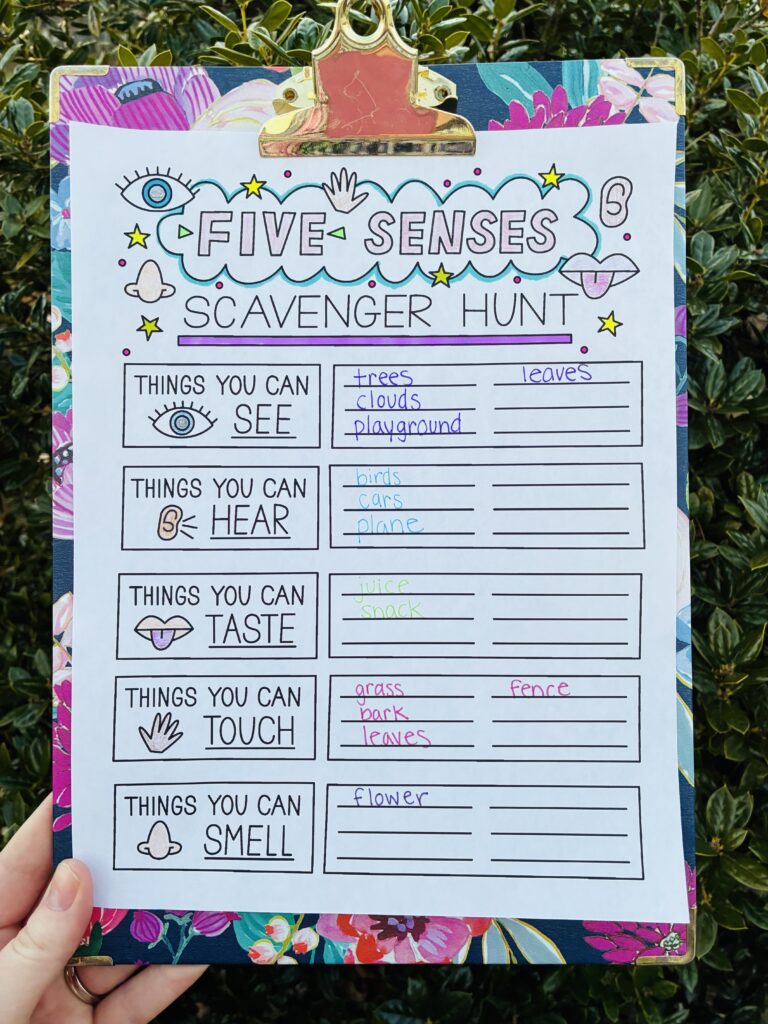 FIVE SENSES
SCAVENGER HUNT
THINGS YOU CAN
SEE
trees leaves
clouds
playground
THINGS YOU CAN
HEAR
birds
cars
plane
THINGS YOU CAN
TASTE
juice
snack
THINGS YOU CAN
TOUCH
grass fence
bark
leaves
THINGS YOU CAN
SMELL
flower